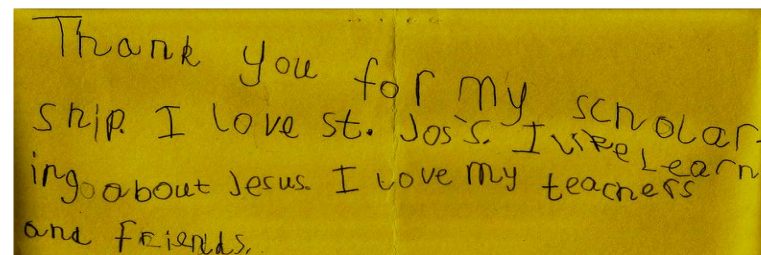 Thank you for my scholar-
ship. I love st. Jos's. I like Learn
ing about Jesus. I love my teachers
and friends.